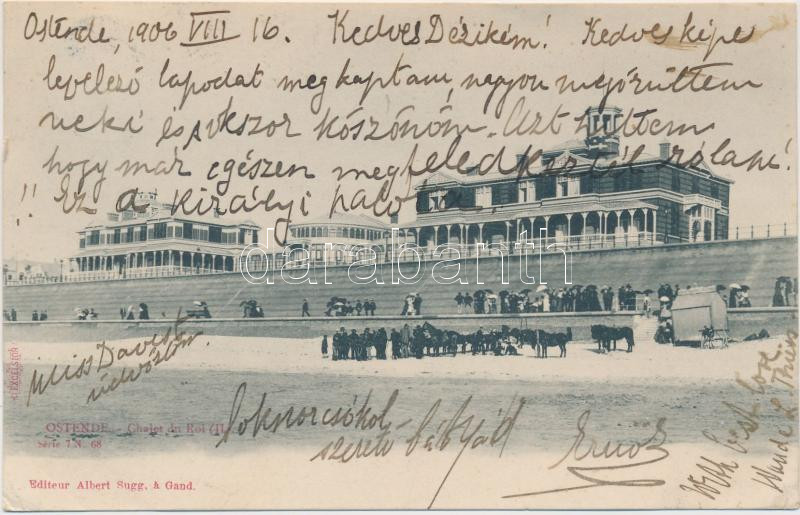 Ostende, 1906 VIII 16. Kedves Dézikém! Kedves képe
levelező lapodat megkaptam, nagyon megőrültem
neki és sokszor köszönöm. Azt hittem
hogy már egészen megfeledkeztél rólam!
!! Ez a királyi palota
darabanth
Miss Davist
üdvözlöm
EXCELSIOR
OSTENDE. - Chalet du Roi (II)
Série 7 N. 68
Soknorcsókol
szerető bátyád
Ernő
With best love
Editeur Albert Sugg, à Gand.